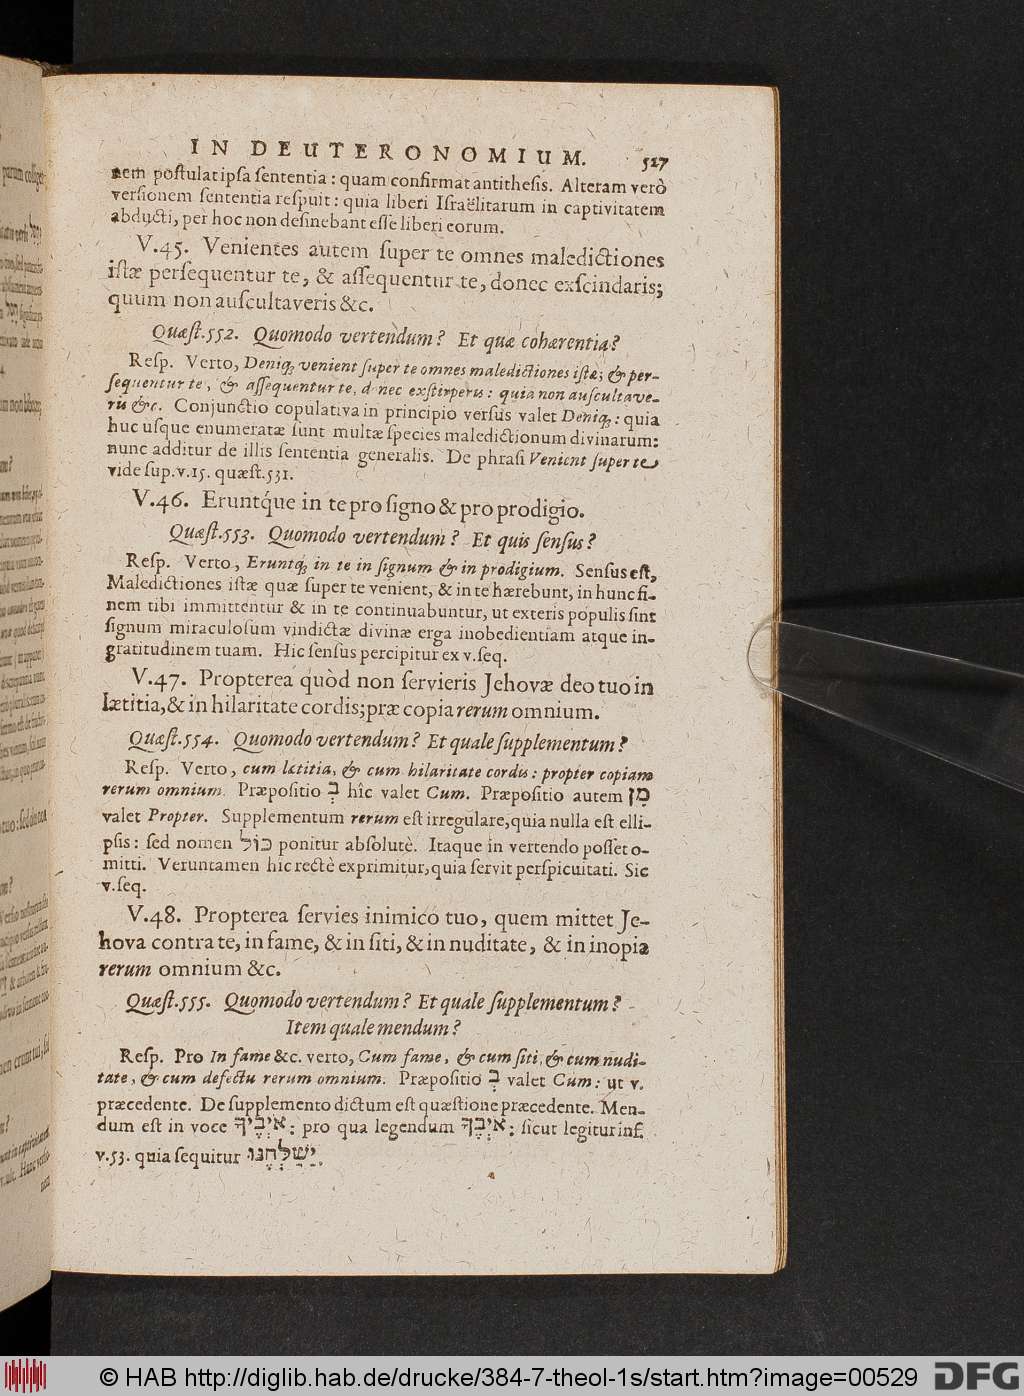 IN DEUTERONOMIUM. 527
nem poſtulat ipſa ſententia: quam confirmat antitheſis. Alteram verò
verſionem ſententia reſpuit: quia liberi Iſraëlitarum in captivitatem
abducti, per hoc non deſinebant eſſe liberi eorum.
V.45. Venientes autem ſuper te omnes maledictiones
iſtæ perſequentur te, & aſſequentur te, donec exſcindaris;
quum non auſcultaveris &c.
Quæſt.552. Quomodo vertendum? Et quæ cohærentia?
Reſp. Verto, Deniq; venient ſuper te omnes maledictiones iſtæ; & per-
ſequentur te, & aſſequentur te, donec exſtirperis: quia non auſcultave-
ris &c. Conjunctio copulativa in principio verſus valet Deniq;: quia
huc uſque enumeratæ ſunt multæ ſpecies maledictionum divinarum:
nunc additur de illis ſententia generalis. De phraſi Venient ſuper te
vide ſup.v.15. quæſt.531.
V.46. Eruntq́ue in te pro ſigno & pro prodigio.
Quæſt.553. Quomodo vertendum? Et quis ſenſus?
Reſp. Verto, Eruntq; in te in ſignum & in prodigium. Senſus eſt,
Maledictiones iſtæ quæ ſuper te venient, & in te hærebunt, in hunc fi-
nem tibi immittentur & in te continuabuntur, ut exteris populis ſint
ſignum miraculoſum vindictæ divinæ erga inobedientiam atque in-
gratitudinem tuam. Hic ſenſus percipitur ex v.ſeq.
V.47. Propterea quòd non ſervieris Jehovæ deo tuo in
lætitia, & in hilaritate cordis; præ copia rerum omnium.
Quæſt.554. Quomodo vertendum? Et quale ſupplementum?
Reſp. Verto, cum lætitia, & cum hilaritate cordis: propter copiam
rerum omnium. Præpoſitio בְּ hîc valet Cum. Præpoſitio autem מִן
valet Propter. Supplementum rerum eſt irregulare, quia nulla eſt elli-
pſis: ſed nomen כּוֹל ponitur abſolutè. Itaque in vertendo poſſet o-
mitti. Veruntamen hic rectè exprimitur, quia ſervit perſpicuitati. Sic
v.ſeq.
V.48. Propterea ſervies inimico tuo, quem mittet Je-
hova contra te, in fame, & in ſiti, & in nuditate, & in inopia
rerum omnium &c.
Quæſt.555. Quomodo vertendum? Et quale ſupplementum?
Item quale mendum?
Reſp. Pro In fame &c. verto, Cum fame, & cum ſiti, & cum nudi-
tate, & cum defectu rerum omnium. Præpoſitio בְּ valet Cum: ut v.
præcedente. De ſupplemento dictum eſt quæſtione præcedente. Men-
dum eſt in voce אֹיְבֶיךָ: pro qua legendum אֹיְבֶךָ: ſicut legitur inf.
v.53. quia ſequitur יְשַׁלְּחֶנּוּ.
© HAB http://diglib.hab.de/drucke/384-7-theol-1s/start.htm?image=00529
DFG